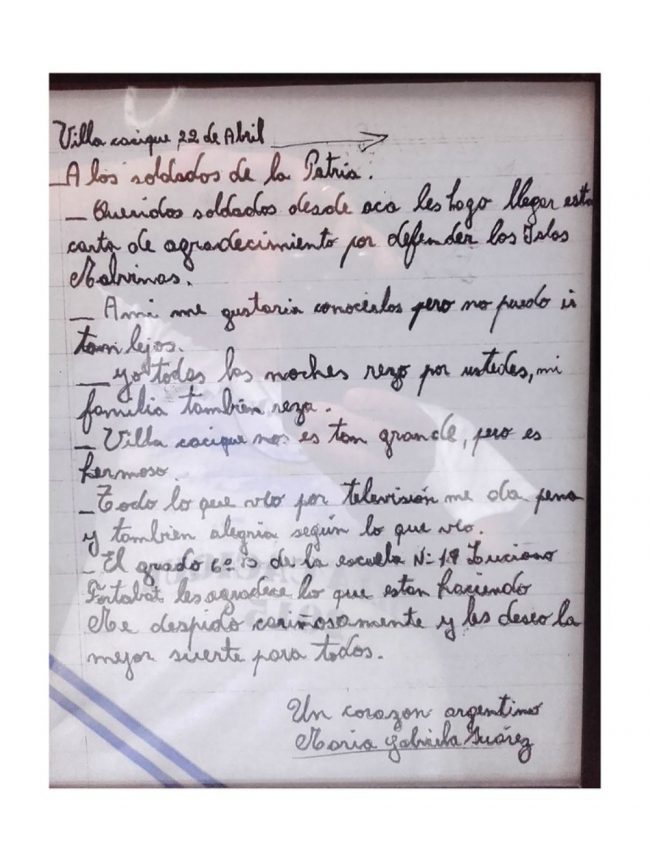 Villa cacique 22 de Abril
_A los soldados de la Patria.
_ Queridos soldados desde aca les hago llegar esta
carta de agradecimiento por defender las Islas
Malvinas.
_ A mi me gustaria conocerlos pero no puedo ir
tan lejos.
_ yo todas las noches rezo por ustedes, mi
familia tambien reza.
_ Villa cacique nos es tan grande, pero es
hermoso.
_Todo lo que veo por televisión me da pena
y tambien alegria según lo que veo.
_ El grado 6º B de la escuela Nº 19 Luciano
Fortabat les agradece lo que estan haciendo
Me despido cariñosamente y les deseo la
mejor suerte para todos.
Un corazon argentino
Maria Gabriela Suárez